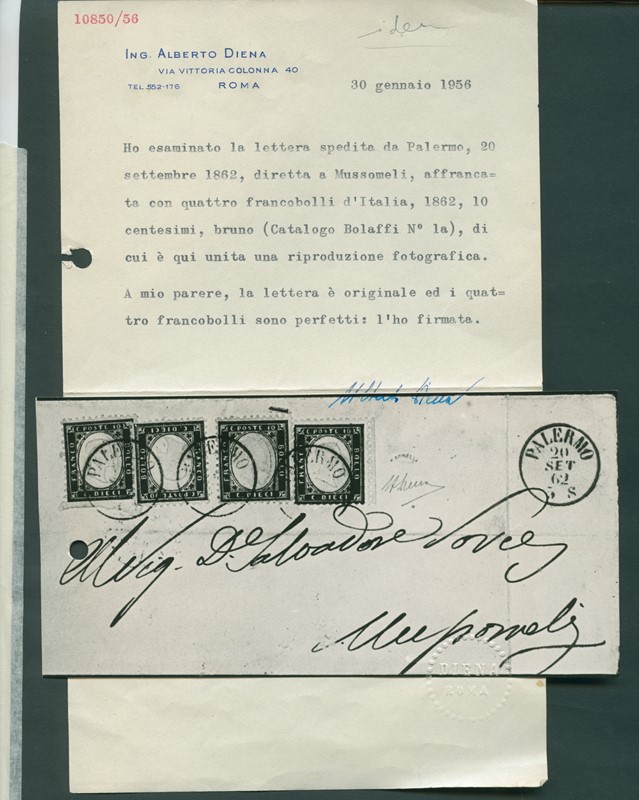 10850/56
iden
ING. ALBERTO DIENA
VIA VITTORIA COLONNA 40
TEL. 552-176 ROMA
30 gennaio 1956
Ho esaminato la lettera spedita da Palermo, 20
settembre 1862, diretta a Mussomeli, affranca=
ta con quattro francobolli d'Italia, 1862, 10
centesimi, bruno (Catalogo Bolaffi N° 1a), di
cui è qui unita una riproduzione fotografica.
A mio parere, la lettera è originale ed i quat=
tro francobolli sono perfetti: l'ho firmata.
Alberto Diena
C. POSTE 10
FRANCO
BOLLO
C. DIECI
C. POSTE 10
FRANCO
BOLLO
C. DIECI
C. POSTE 10
FRANCO
BOLLO
C. DIECI
C. POSTE 10
FRANCO
BOLLO
C. DIECI
PALERMO
PALERMO
PALERMO
A. Diena
PALERMO
20
SET
62
S
Salvadore
Mussomeli
DIENA
ROMA